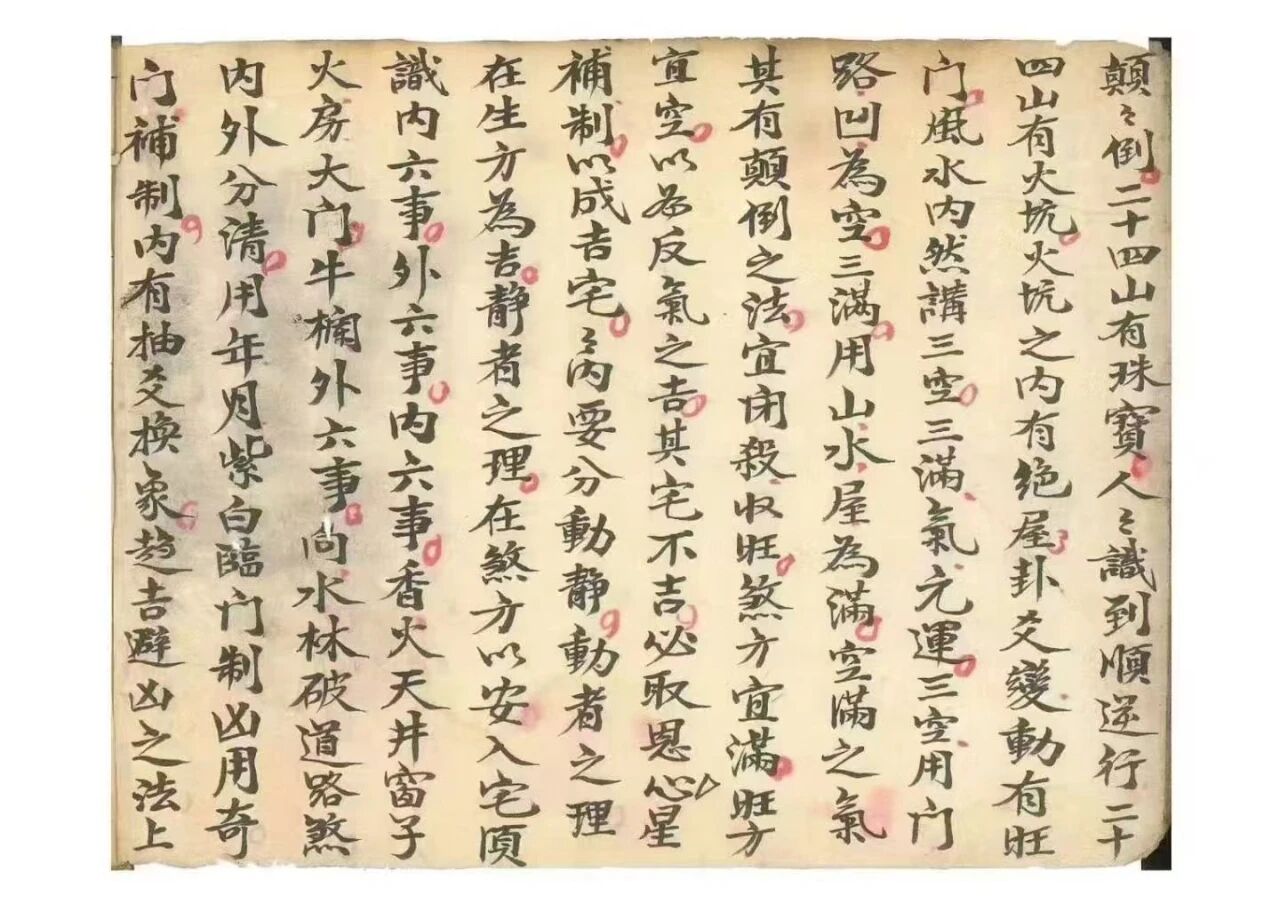 顛〻倒二十四山有珠寶人〻識到順逆行二十
四山有火坑火坑之内有绝屋卦爻變動有旺
门風水内然講三空三滿氣元運三空用門
路凹為空三滿用山水屋為滿空滿之氣
其有顛倒之法宜闭殺收旺煞方宜滿旺方
宜空以为反氣之吉其宅不吉必取恩心星
補制以成吉宅〻内要分動静動者之理
在生方為吉静者之理在煞方以安入宅須
識内六事外六事内六事香火天井窗子
火房大门牛欄外六事向水林破道路煞
内外分清用年月紫白臨门制凶用奇
门補制内有抽爻換象趋吉避凶之法上